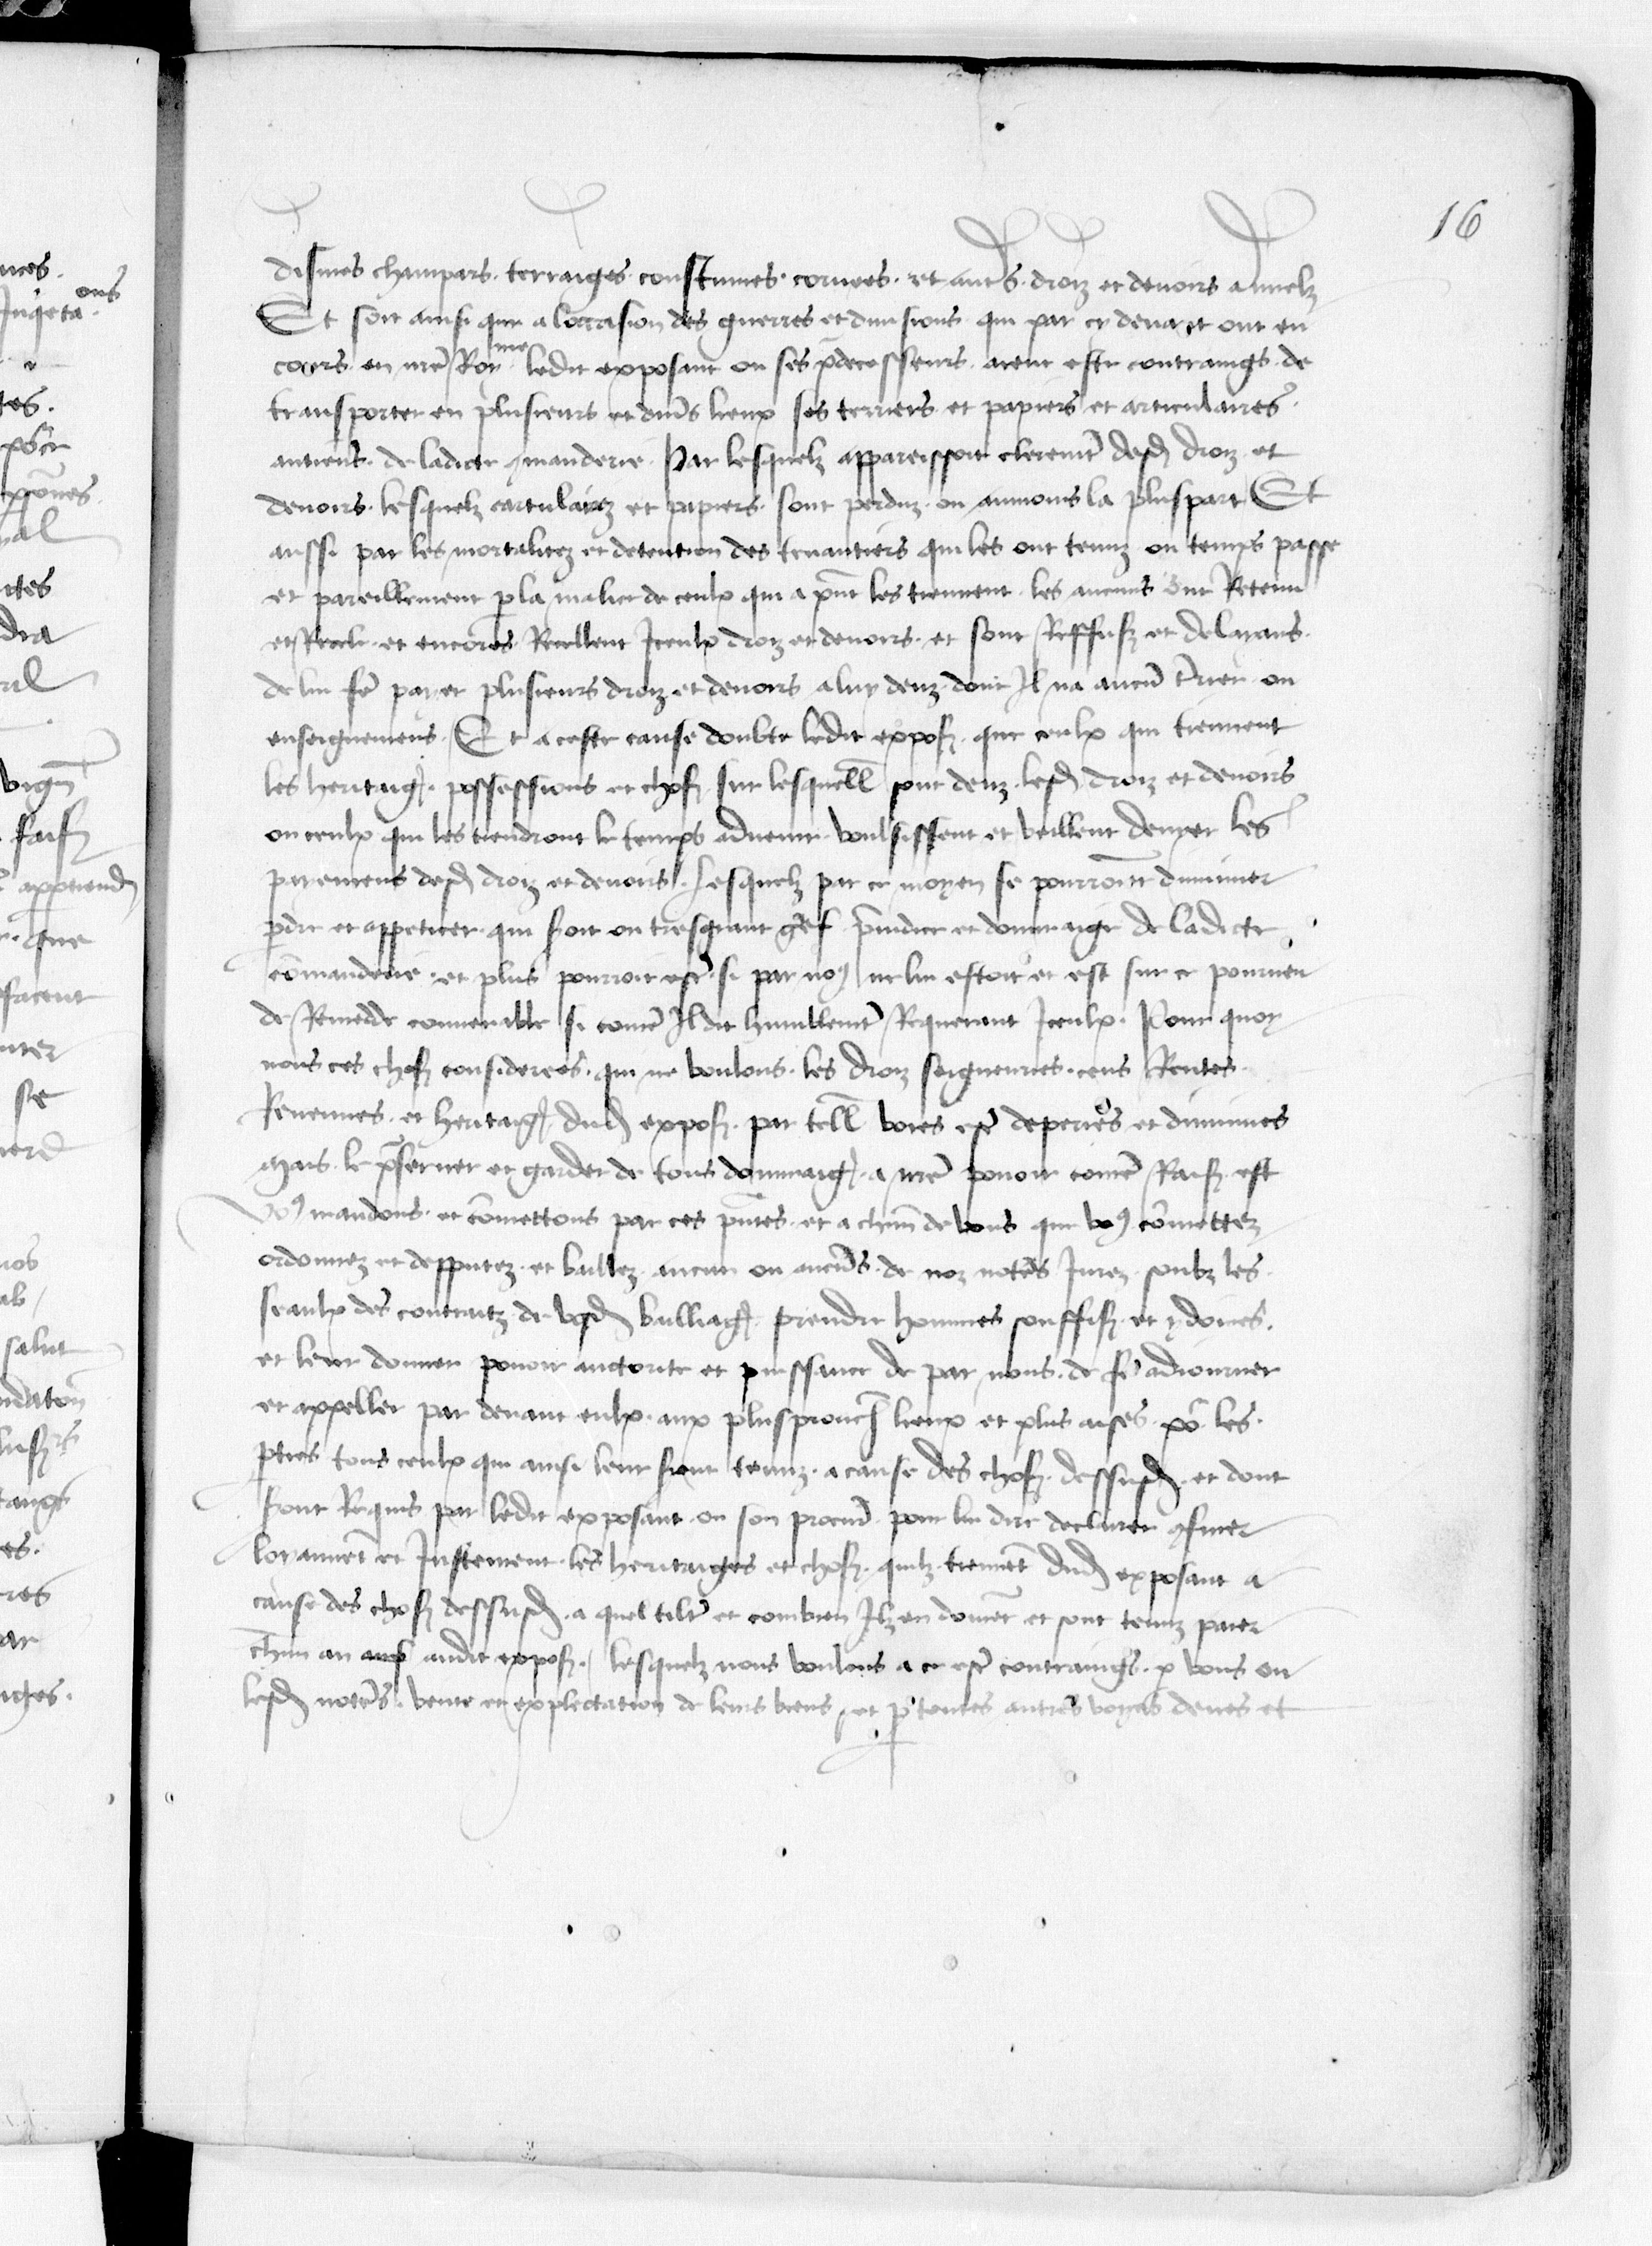 16
disines champars. terraiges constumes. corvees. et autrs. droiz et devoirs annuelz
Et soit ainsi que a loccasion des guerres et divisions qui par cy devant et ont eu
cours en nre Royme ledit exposant ou ses pdecesseurs aient este contraings de
transporter en plusieurs et divs lieux ses terriers et papiers et articulaires
antiens. de ladicte gmanderie. Par lesquelz appareissoit cleremt desd droiz et
devoirs. lesquelz cartulairez et papiers. sont perduz ou aumoins la pluspart Et
aussi par les mortalitez et detention des tenantiers qui les ont tenuz ou temps passe
et pareillement p la malice de ceulx qui a pnt les tiennent. les aucuns ont Retenu
et Recele. et encores Recellent Iceulx droiz et devoirs. et sont Reffusz et delayans.
de lui fe payer plusieurs droiz et devoirs a luy deuz. dont Il na aucun trier ou
enseignemens. Et a ceste cause doubte ledit exposz. que ceulx qui tiennent
les heritaigz. possessions et chosz sur lesquell sont deuz. lesd droiz et devoirs
ou ceulx qui les tiendront le temps advenir voulsissent et veillent denyer les
payemens desd droiz et devoirs. Lesquelz par ce moyen se pourroient diminuer
pdre et appeticer. qui soit ou tresgrant gref preiudice et dommaige de ladicte
commanderie. et plus pourroit estr. si par no9 ne lui estoit et est sur ce pourveu
de Remedde convenable si come Il dit humblemt Requerant Iceulx. Pour quoy
nous ces chosz considerees. qui ne voulons. les droiz seigneuries. cens Rentes.
Revenues. et heritaigz dud exposz. par tell voies estr deperies et diminues
Mais. le pserver et garder de tous dommaigz. a nre povoir come Raisz est
Vo9 mandons. et comettons par ces pntes. et a chun de vous que vo9 comettez
ordonnez et depputez. et baillez aucun ou aucuns. de noz notes Iurez soubz les
seaulx des contraitz. de vosd bailliagz. prendre hommes souffisz et ydoines.
et leur donner povoir auctorite et puissance de par nous. de fe adiourner
et appeller par devant eulx. aux plusprouch lieux et plus aises. po les.
pties tous ceulx qui ainsi leur sront tenuz. a cause des chosz dessusd. et dont
sront Requis par ledit exposant ou son procur. pour lui dire declairer gfiner
loyaumet et Iustement. les heritaiges et chosz. quilz tiennet dud exposant a
cause des chosz dessusd. a quel tiltr et combien Ilz en doivet et sont tenuz paier
chun an audit exposz. lesquelz nous voulons a ce estr contraings. p vous ou
lesd notes. vente et explectation de leurs biens et p toutes autres voyes deues et